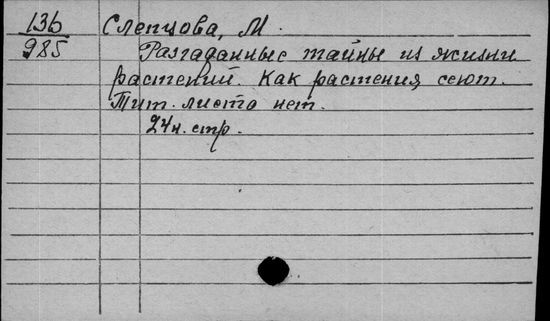 136 Слепцова, М.
985 Разгаданные тайны из жизни
растений. Как растения сеют.
Тит. листа нет.
24 н. стр.